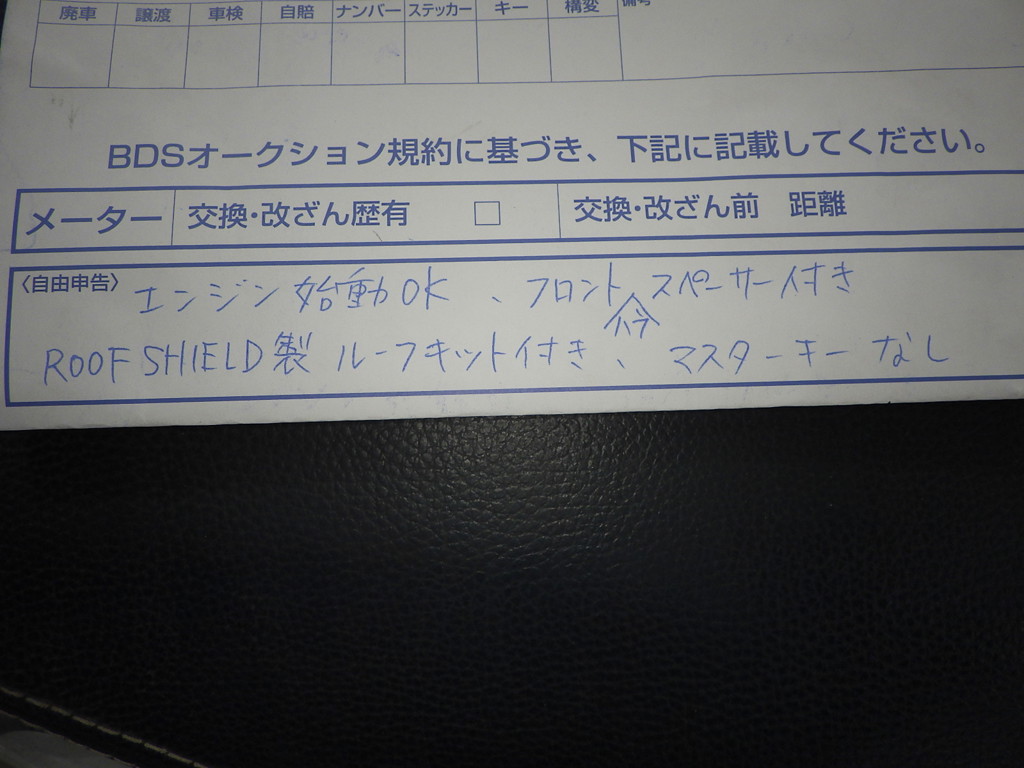 廃車 譲渡 車検 自賠 ナンバー ステッカー キー 構変 備考
BDSオークション規約に基づき、下記に記載してください。
メーター 交換・改ざん歴有 □ 交換・改ざん前 距離
〈自由申告〉 エンジン始動OK、フロントスペーサー付き
ハブ
ROOF SHIELD製 ルーフキット付き、マスターキーなし